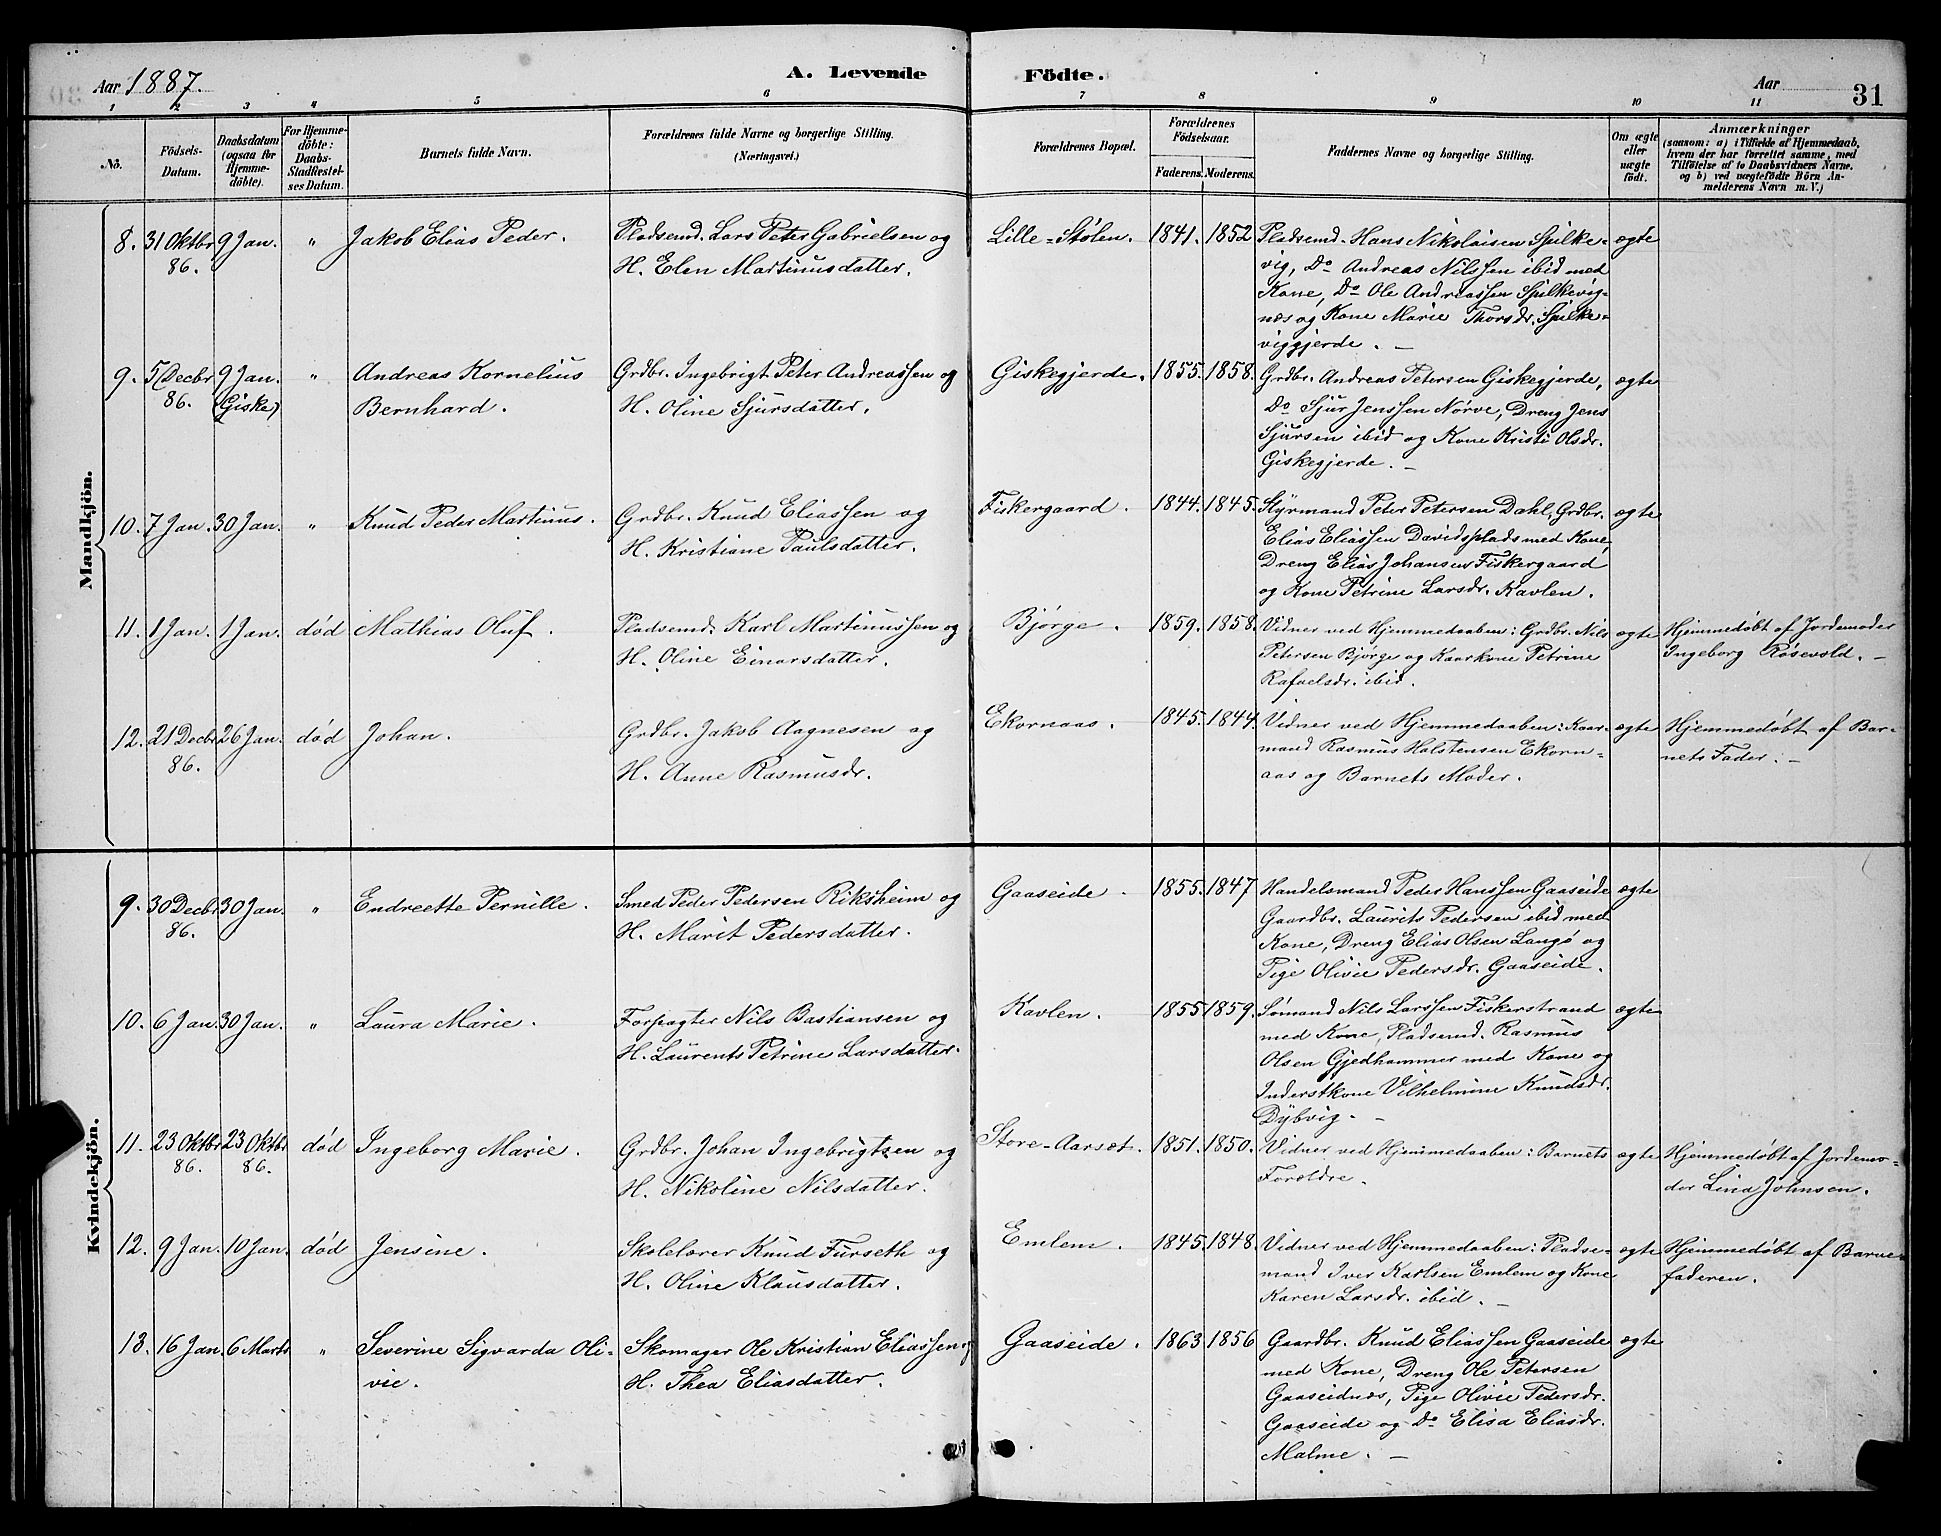 Aar 1887.
A. Levende Födte.
Aar
31
1 2 3 4 5 6 7 8 9 10 11
No.
Födsels-Datum.
Daabsdatum (ogsaa for Hjemme-döbte).
For Hjemme-döbte: Daabs-Stadfæstel-ses Datum.
Barnets fulde Navn.
Forældrenes fulde Navne og borgerlige Stilling.
(Næringsvei.)
Forældrenes Bopæl.
Forældrenes Födselsaar.
Faderens. Moderens.
Faddernes Navne og borgerlige Stilling.
Om ægte eller uægte födt.
Anmærkninger
(saasom: a) i Tilfælde af Hjemmedaab,
hvem der har forrettet samme, med
Tilföielse af to Daabsvidners Navne.
og b) ved uægtefödte Börn An-
melderens Navn m. V.)
Mandkjön.
8. 31 Oktbr 86. 9 Jan. " Jakob Elias Peder. Pladsemd. Lars Peter Gabrielsen og
H. Elen Martinusdatter.
Lille-Stølen. 1841. 1852 Pladsemd. Hans Nikolaisen Spilke- ægte
vig, Do Andreas Nilssen ibid med
Kone, Do Ole Andreassen Spilkevig-
næs og Kone Marie Thorsdr. Spilke-
viggjerde. –
9. 5 Decbr 86. 9 Jan. (Giske) " Andreas Kornelius
Bernhard.
Grdbr. Ingebrigt Peter Andreassen og
H. Oline Sjursdatter.
Giskegjerde. 1855. 1858. Grdbr. Andreas Petersen Giskegjerde, ægte
Do Sjur Jenssen Nørve, Dreng Jens
Sjursen ibid og Kone Kristi Olsdr.
Giskegjerde. –
10. 7 Jan. 30 Jan. " Knud Peder Martinus. Grdbr. Knud Eliassen og
H. Kristiane Paulsdatter.
Fiskergaard. 1844. 1845. Styrmand Peter Petersen Dahl, Grdbr. ægte
Elias Eliassen Davidsplads med Kone,
Dreng Elias Johansen Fiskergaard
og Kone Petrine Larsdr. Kavlen.
11. 1 Jan. 1 Jan. død Mathias Oluf. Pladsemd. Karl Martinussen og
H. Oline Einarsdatter.
Bjørge. 1859. 1858. Vidner ved Hjemmedaaben: Grdbr. Nils ægte
Petersen Bjørge og Kaarkone Petrine
Rafaelsdr. ibid.
Hjemmedøbt af Jordemoder
Ingeborg Røsevold. –
12. 21 Decbr 86. 26 Jan. død Johan. Grdbr. Jakob Aagnesen og
H. Anne Rasmusdr.
Ekornaas. 1845. 1844. Vidner ved Hjemmedaaben: Kaar- ægte
mand Rasmus Halstensen Ekorn-
aas og Barnets Moder.
Hjemmedøbt af Bar-
nets Fader. –
Kvindekjön.
9. 30 Decbr 86. 30 Jan. " Endreette Pernille. Smed Peder Pedersen Riksheim og
H. Marit Pedersdatter.
Gaaseide. 1855. 1847 Handelsmand Peder Hanssen Gaaseide ægte
Gaardbr. Laurits Pedersen ibid med
Kone, Dreng Elias Olsen Langø og
Pige Olivie Pedersdr. Gaaseide.
10. 6 Jan. 30 Jan. " Laura Marie. Forpagter Nils Bastiansen og
H. Laurents Petrine Larsdatter.
Kavlen. 1855 1859. Sømand Nils Larssen Fiskerstrand ægte
med Kone, Pladsemd. Rasmus
Olsen Gjedhammer med Kone og
Inderstkone Vilhelmine Knudsdr.
Dybvig. –
11. 23 Oktbr 86. 23 Oktbr 86. død Ingeborg Marie. Grdbr. Johan Ingebrigtsen og
H. Nikoline Nilsdatter.
Store-Aarsæt. 1851. 1850. Vidner ved Hjemmedaaben: Barnets ægte
Forældre.
Hjemmedøbt af Jordemo-
der Lina Johnsen.
12. 9 Jan. 10 Jan. død Jensine. Skolelærer Knud Furseth og
H. Oline Klausdatter.
Emlem. 1845. 1848. Vidner ved Hjemmedaaben: Pladse- ægte
mand Iver Karlsen Emlem og Kone
Karen Larsdr. ibid. –
Hjemmedøbt af Barne-
faderen.
13. 16 Jan. 6 Marts " Severine Sigvarda Oli-
vie.
Skomager Ole Kristian Eliassen og
H. Thea Eliasdatter.
Gaaseide. 1863 1856 Gaardbr. Knud Eliassen Gaaseide ægte
med Kone, Dreng Ole Petersen
Gaaseidnæs, Pige Olivie Pedersdr.
Gaaseide og Do Elisa Eliasdr.
Malme. –